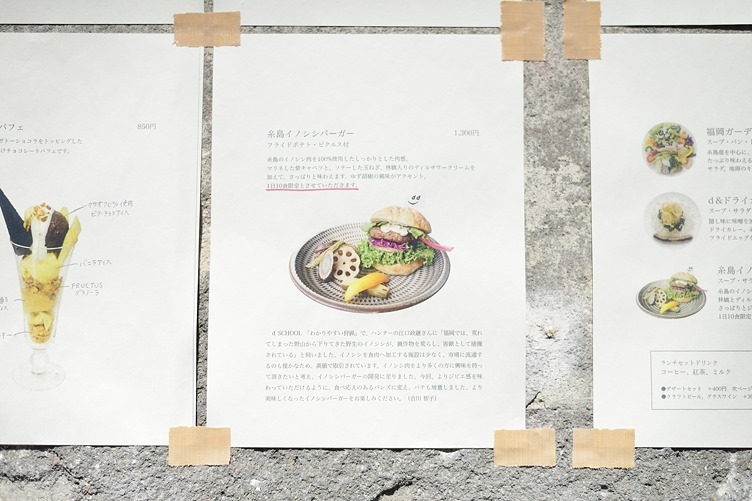 パフェ 850円
ガトーショコラをトッピングした
けチョコレートパフェです。
バニラアイス
FRUCTUS
グラノーラ
糸島イノシシバーガー 1,300円
フライドポテト・ピクルス付
糸島のイノシシ肉を100%使用したしっかりとした肉感。
マリネした紫キャベツと、ソテーした玉ねぎ、林檎入りのディルサワークリームを
加えて、さっぱりと味わえます。ゆず胡椒の風味がアクセント。
1日10食限定とさせていただきます。
d SCHOOL「わかりやすい狩猟」で、ハンターの江口政継さんに「福岡では、荒れ
てしまった野山から下りてきた野生のイノシシが、農作物を荒らし、害獣として捕獲
されている」と伺いました。イノシシを食肉へ加工する施設は少なく、市場に流通す
るのも僅かなため、高値で取引されています。イノシシ肉をより多くの方に興味を持っ
て頂きたいと考え、イノシシバーガーの開発に至りました。今回、よりジビエ感を味
わっていただけるように、食べ応えのあるバンズに変え、パテも増量しました。より
美味しくなったイノシシバーガーをお楽しみください。
福岡ガーデ
スープ・パン・
たっぷり味わえる
d&ドライカ
スープ・サラダ
ドライカレー。
糸島イノ
スープ・サラダ
糸島のイノシシ
林檎とディ
1日10食限
ランチセットドリンク
コーヒー、紅茶、ミルク
●デザートセット +400円 次ページ
●クラフトビール、グラスワイン